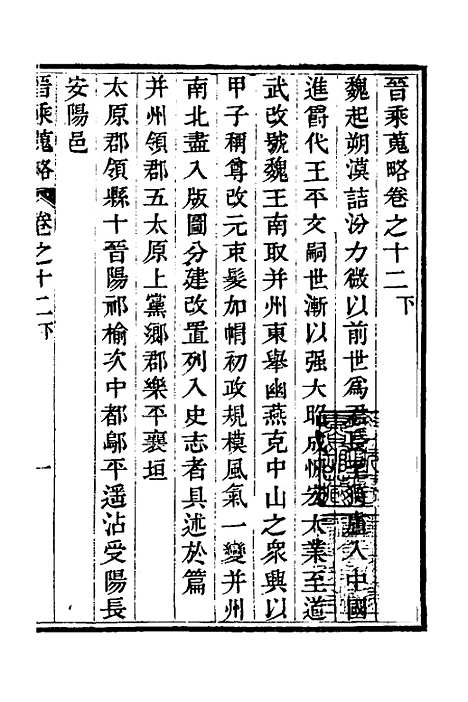 晉乘蒐略卷之十二下
魏起朔漠詰汾力微以前世為君長至猗盧入中國
進爵代王平文嗣世漸以强大昭成恢宏大業至道
武改號魏王南取并州東舉幽燕克中山之衆興以
甲子稱尊改元束髮加帽初政規模風氣一變并州
南北盡入版圖分建改置列入史志者具述於篇
并州領郡五太原上黨鄉郡樂平襄垣
太原郡領縣十晉陽祁榆次中都鄔平遥沾受陽長
安陽邑
晉乘蒐略 卷之十二下 一